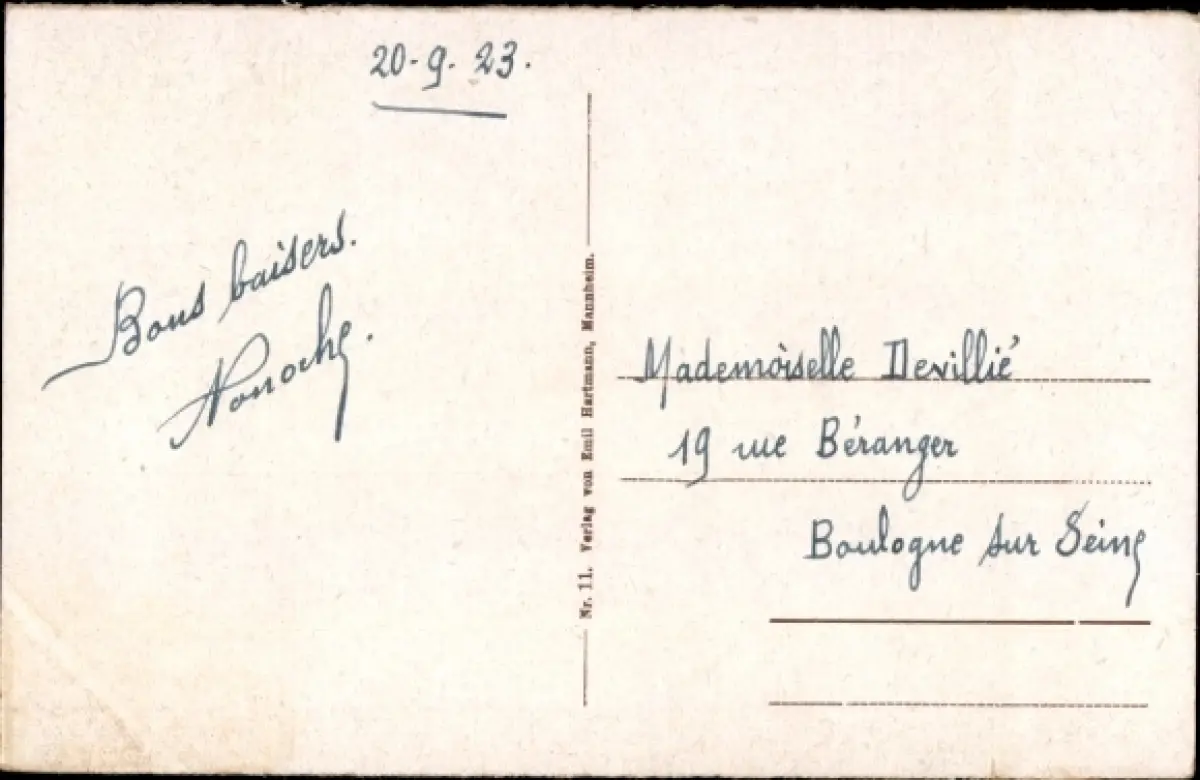 20-9-23.
Bons baisers.
Nonoche.
Nr. 11. Verlag von Emil Hartmann, Mannheim.
Mademoiselle Devillié
19 rue Béranger
Boulogne sur Seine